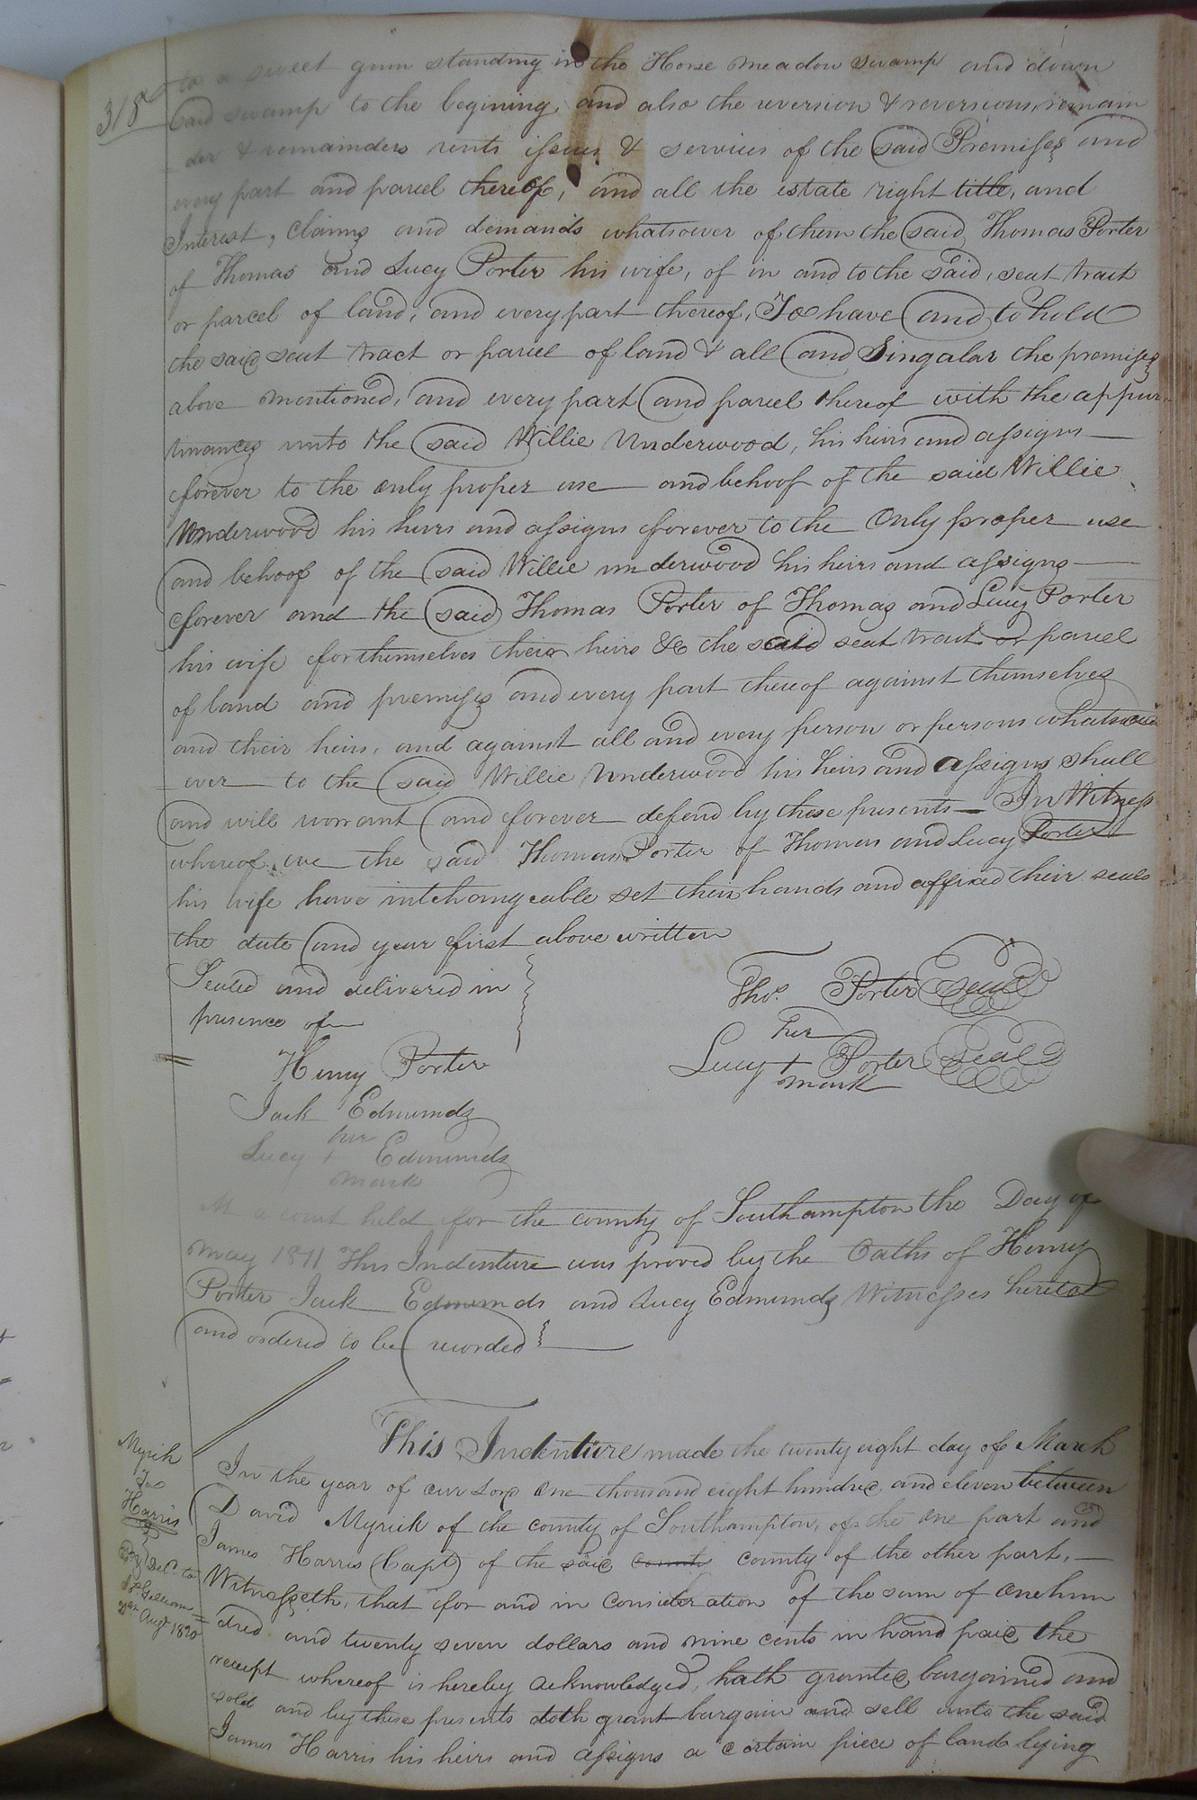 318
to a sweet gum standing in the Horse meadow swamp and down
said swamp to the begining, and also the reversion & reversions, remain
der & remainders rents issues & services of the said Premises and
every part and parcel thereof, and all the estate right title, and
Interest, claims and demands whatsoever of them the said Thomas Porter
of Thomas and Lucy Porter his wife, of in and to the said, seat tract
or parcel of land, and every part thereof, To have and to hold
the said seat tract or parcel of land & all and Singalar the premises
above mentioned, and every part and parcel thereof with the appur
tinances unto the said Willie Underwood, his heirs and assigns
forever to the only proper use and behoof of the said Willie
Underwood his heirs and assigns forever to the Only proper use
and behoof of the said Willie underwood his heirs and assigns
forever and the said Thomas Porter of Thomas and Lucy Porter
his wife for themselves their heirs &c the said seat tract or parcel
of land and premises and every part thereof against themselves
and their heirs, and against all and every person or persons
ever to the said Willie Underwood his heirs and assigns shall
and will warrant and forever defend by these presents In Witness
whereof we the said Thomas Porter of Thomas and Lucy Porter
his wife have intchangeable set their hands and affixed their seals
the date and year first above written
Sealed and delivered in
presence of
Thos. Porter Seal
her
Lucy + Porter Seal
mark
Henry Porter
Jack Edmunds
her
Lucy + Edmunds
mark
At a court held for the county of Southampton the Day of
May 1811 This Indenture was proved by the Oaths of Henry
Porter Jack Edmunds and Lucy Edmunds Witnesses hereto
and ordered to be recorded
Myrick
To
Harris
Del. to
Augt 1820
This Indenture made the twenty eight day of March
In the year of our Lord One thousand eight hundred and eleven between
David Myrick of the county of Southampton, of the one part and
James Harris (Capt) of the said county of the other part,
Witnesseth, that for and in consideration of the sum of one hun
dred and twenty seven dollars and nine cents in hand paid the
receipt whereof is hereby acknowledged, hath granted bargained and
sold and by these presents doth grant bargain and sell unto the said
James Harris his heirs and assigns a certain piece of land lying